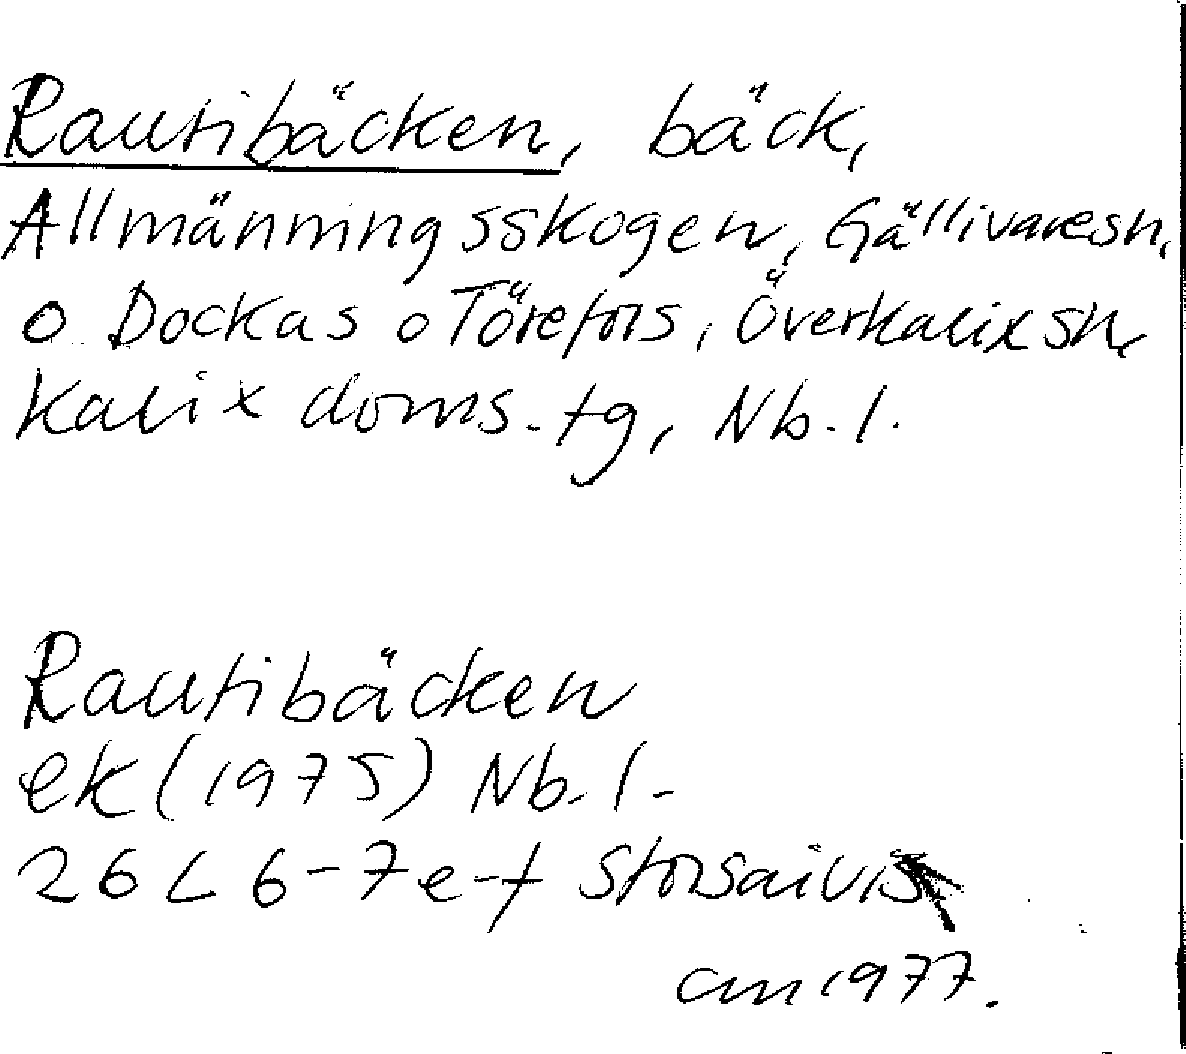 Rautibäcken, bäck,
Allmänningsskogen, Gällivaresn,
o Dockas o Törefors, Överkalix sn,
Kalix doms.tg, Nb.l.
Rautibäcken
ek (1975) Nb.l.
26 L 6-7e-f Storsaivis
cm 1977.